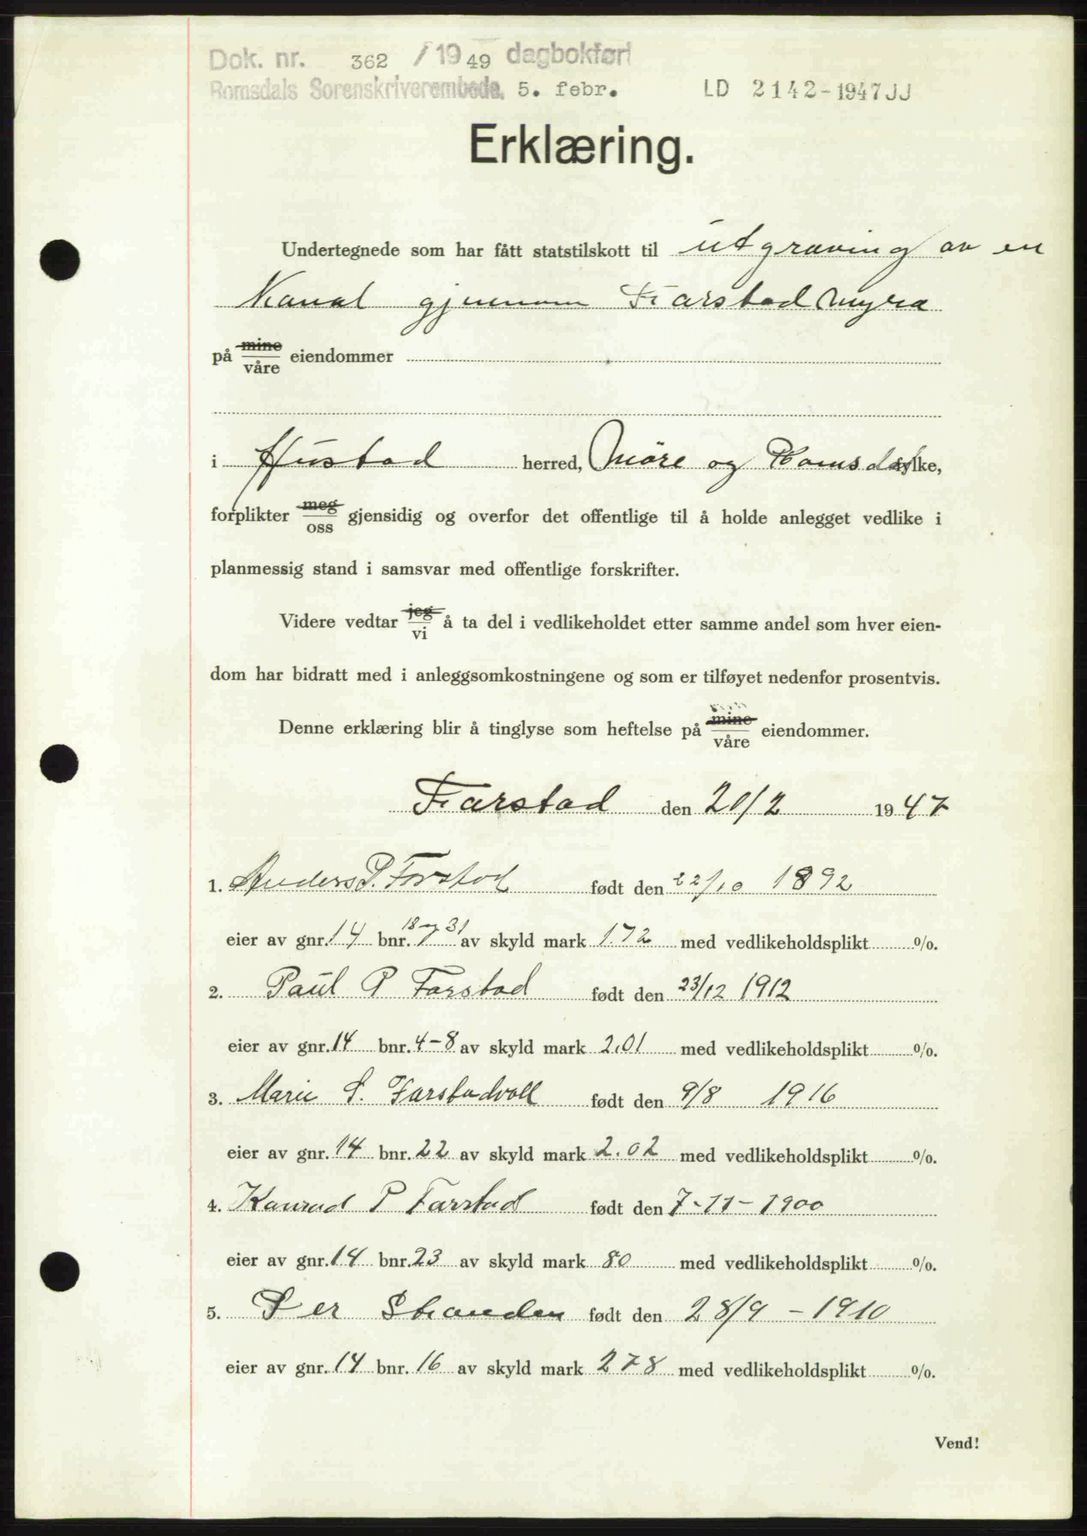 Dok. nr. 362 / 19 49 dagbokført
Romsdals Sorenskriverembede, 5. febr. LD 2142-1947 JJ
Erklæring.
Undertegnede som har fått statstilskott til utgraving av en
Kanal gjennom Farstadmyra
på mine/våre eiendommer
i Hustad herred, Møre og Romsdal sylke,
forplikter meg/oss gjensidig og overfor det offentlige til å holde anlegget vedlike i
planmessig stand i samsvar med offentlige forskrifter.
Videre vedtar jeg/vi å ta del i vedlikeholdet etter samme andel som hver eien-
dom har bidratt med i anleggsomkostningene og som er tilføyet nedenfor prosentvis.
Denne erklæring blir å tinglyse som heftelse på mine/våre eiendommer.
Farstad den 20/2 1947
1. Anders P. Farstad født den 22/10 1892
eier av gnr. 14 bnr. 18 og 31 av skyld mark 1.72 med vedlikeholdsplikt %.
2. Paul P Farstad født den 23/12 1912
eier av gnr. 14 bnr. 4-8 av skyld mark 2.01 med vedlikeholdsplikt %.
3. Marie S. Farstadvoll født den 9/8 1916
eier av gnr. 14 bnr. 22 av skyld mark 2.02 med vedlikeholdsplikt %.
4. Konrad P Farstad født den 7-11-1900
eier av gnr. 14 bnr. 23 av skyld mark 80 med vedlikeholdsplikt %.
5. Per Stranden født den 28/9 - 1910
eier av gnr. 14 bnr. 16 av skyld mark 278 med vedlikeholdsplikt %.
Vend!